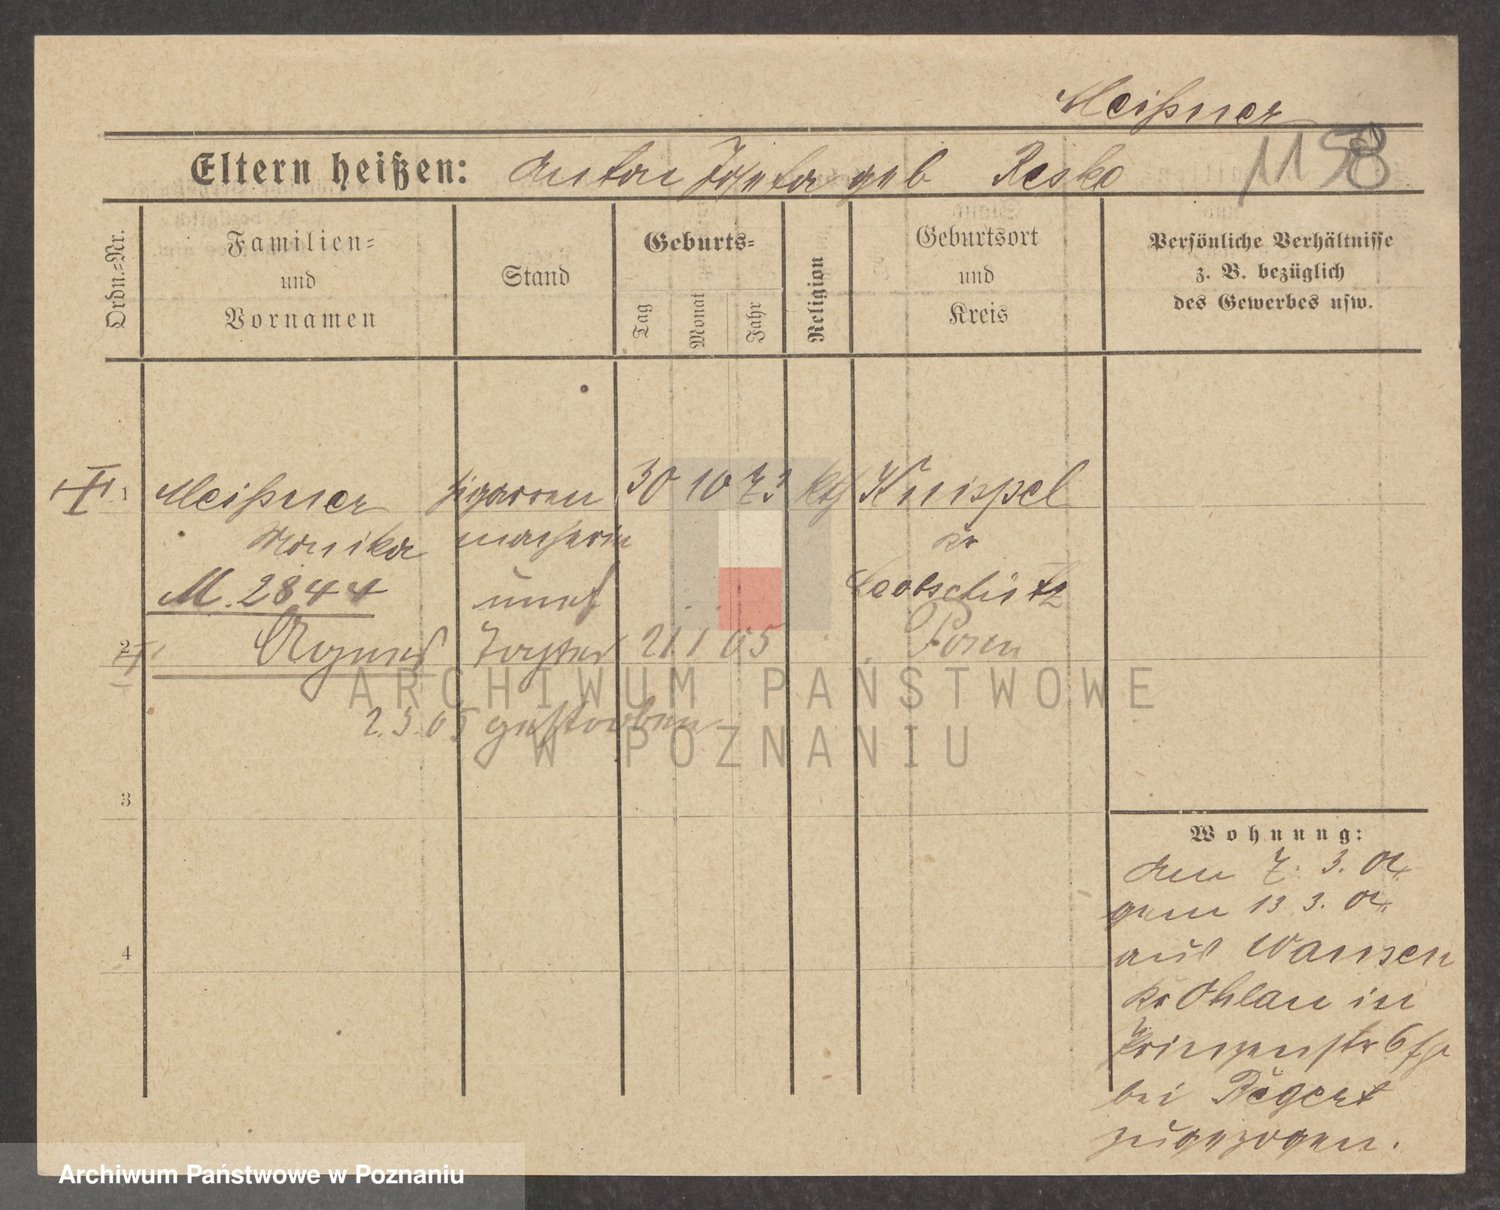 Meißner
1158
Eltern heißen: Anton Josefa geb Resko
Ordn.-Nr.
Familien-
und
Vornamen
Stand
Geburts-
Tag
Monat
Jahr
Religion
Geburtsort
und
Kreis
Persönliche Verhältnisse
z. B. bezüglich
des Gewerbes usw.
1 Meißner Zigarren 30 10 73 kth Knispel
Monika macherin Kr
M. 2844 Leobschütz
2 Agnes Tochter 21 1 05 Posen
2.3.05 gestorben
3
4
Wohnung:
den 7. 3. 04
gem 13 3. 04
aus Wansen
Kr Ohlau in
Prinzenstr 6
bei Regert
zugezogen.
ARCHIWUM PAŃSTWOWE
W POZNANIU
Archiwum Państwowe w Poznaniu